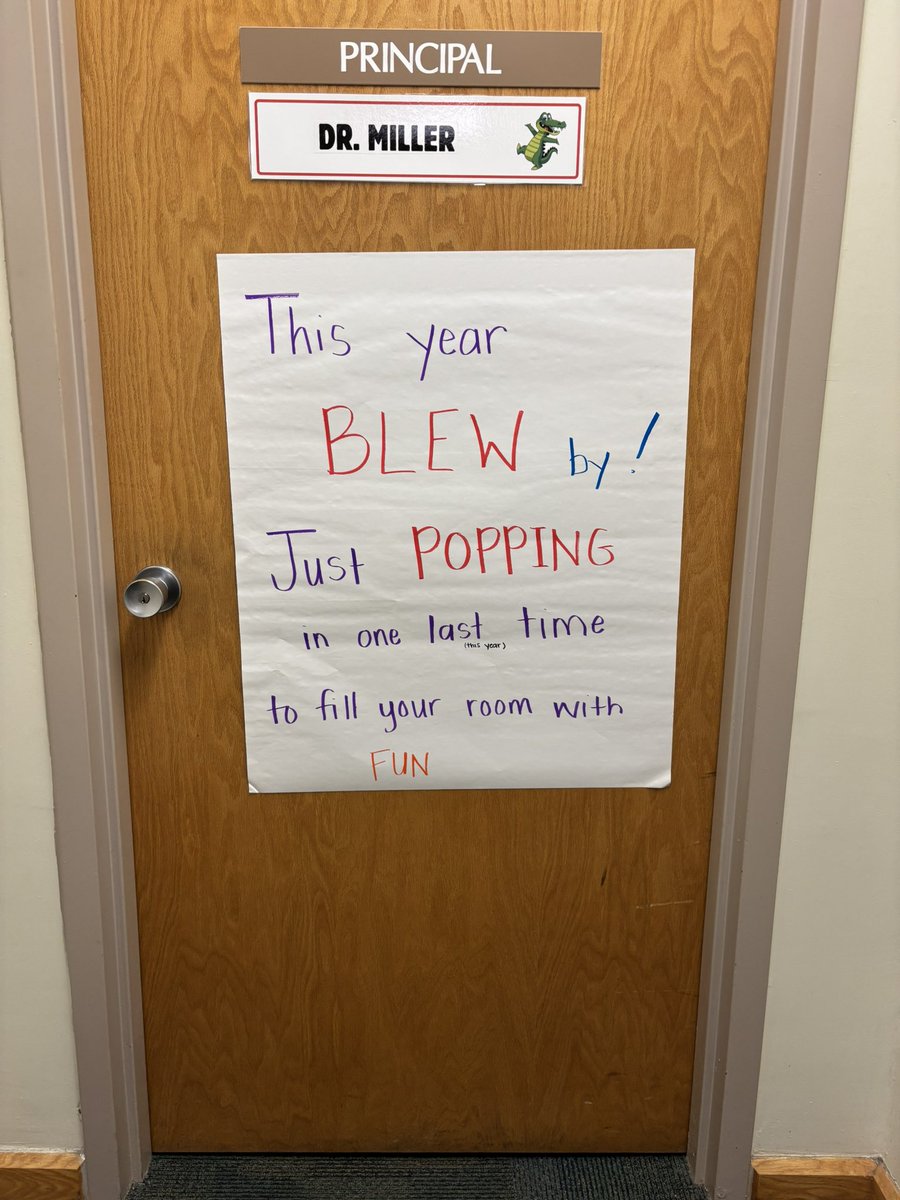 PRINCIPAL
DR. MILLER
This year
BLEW by!
Just POPPING
in one last time
(this year)
to fill your room with
FUN